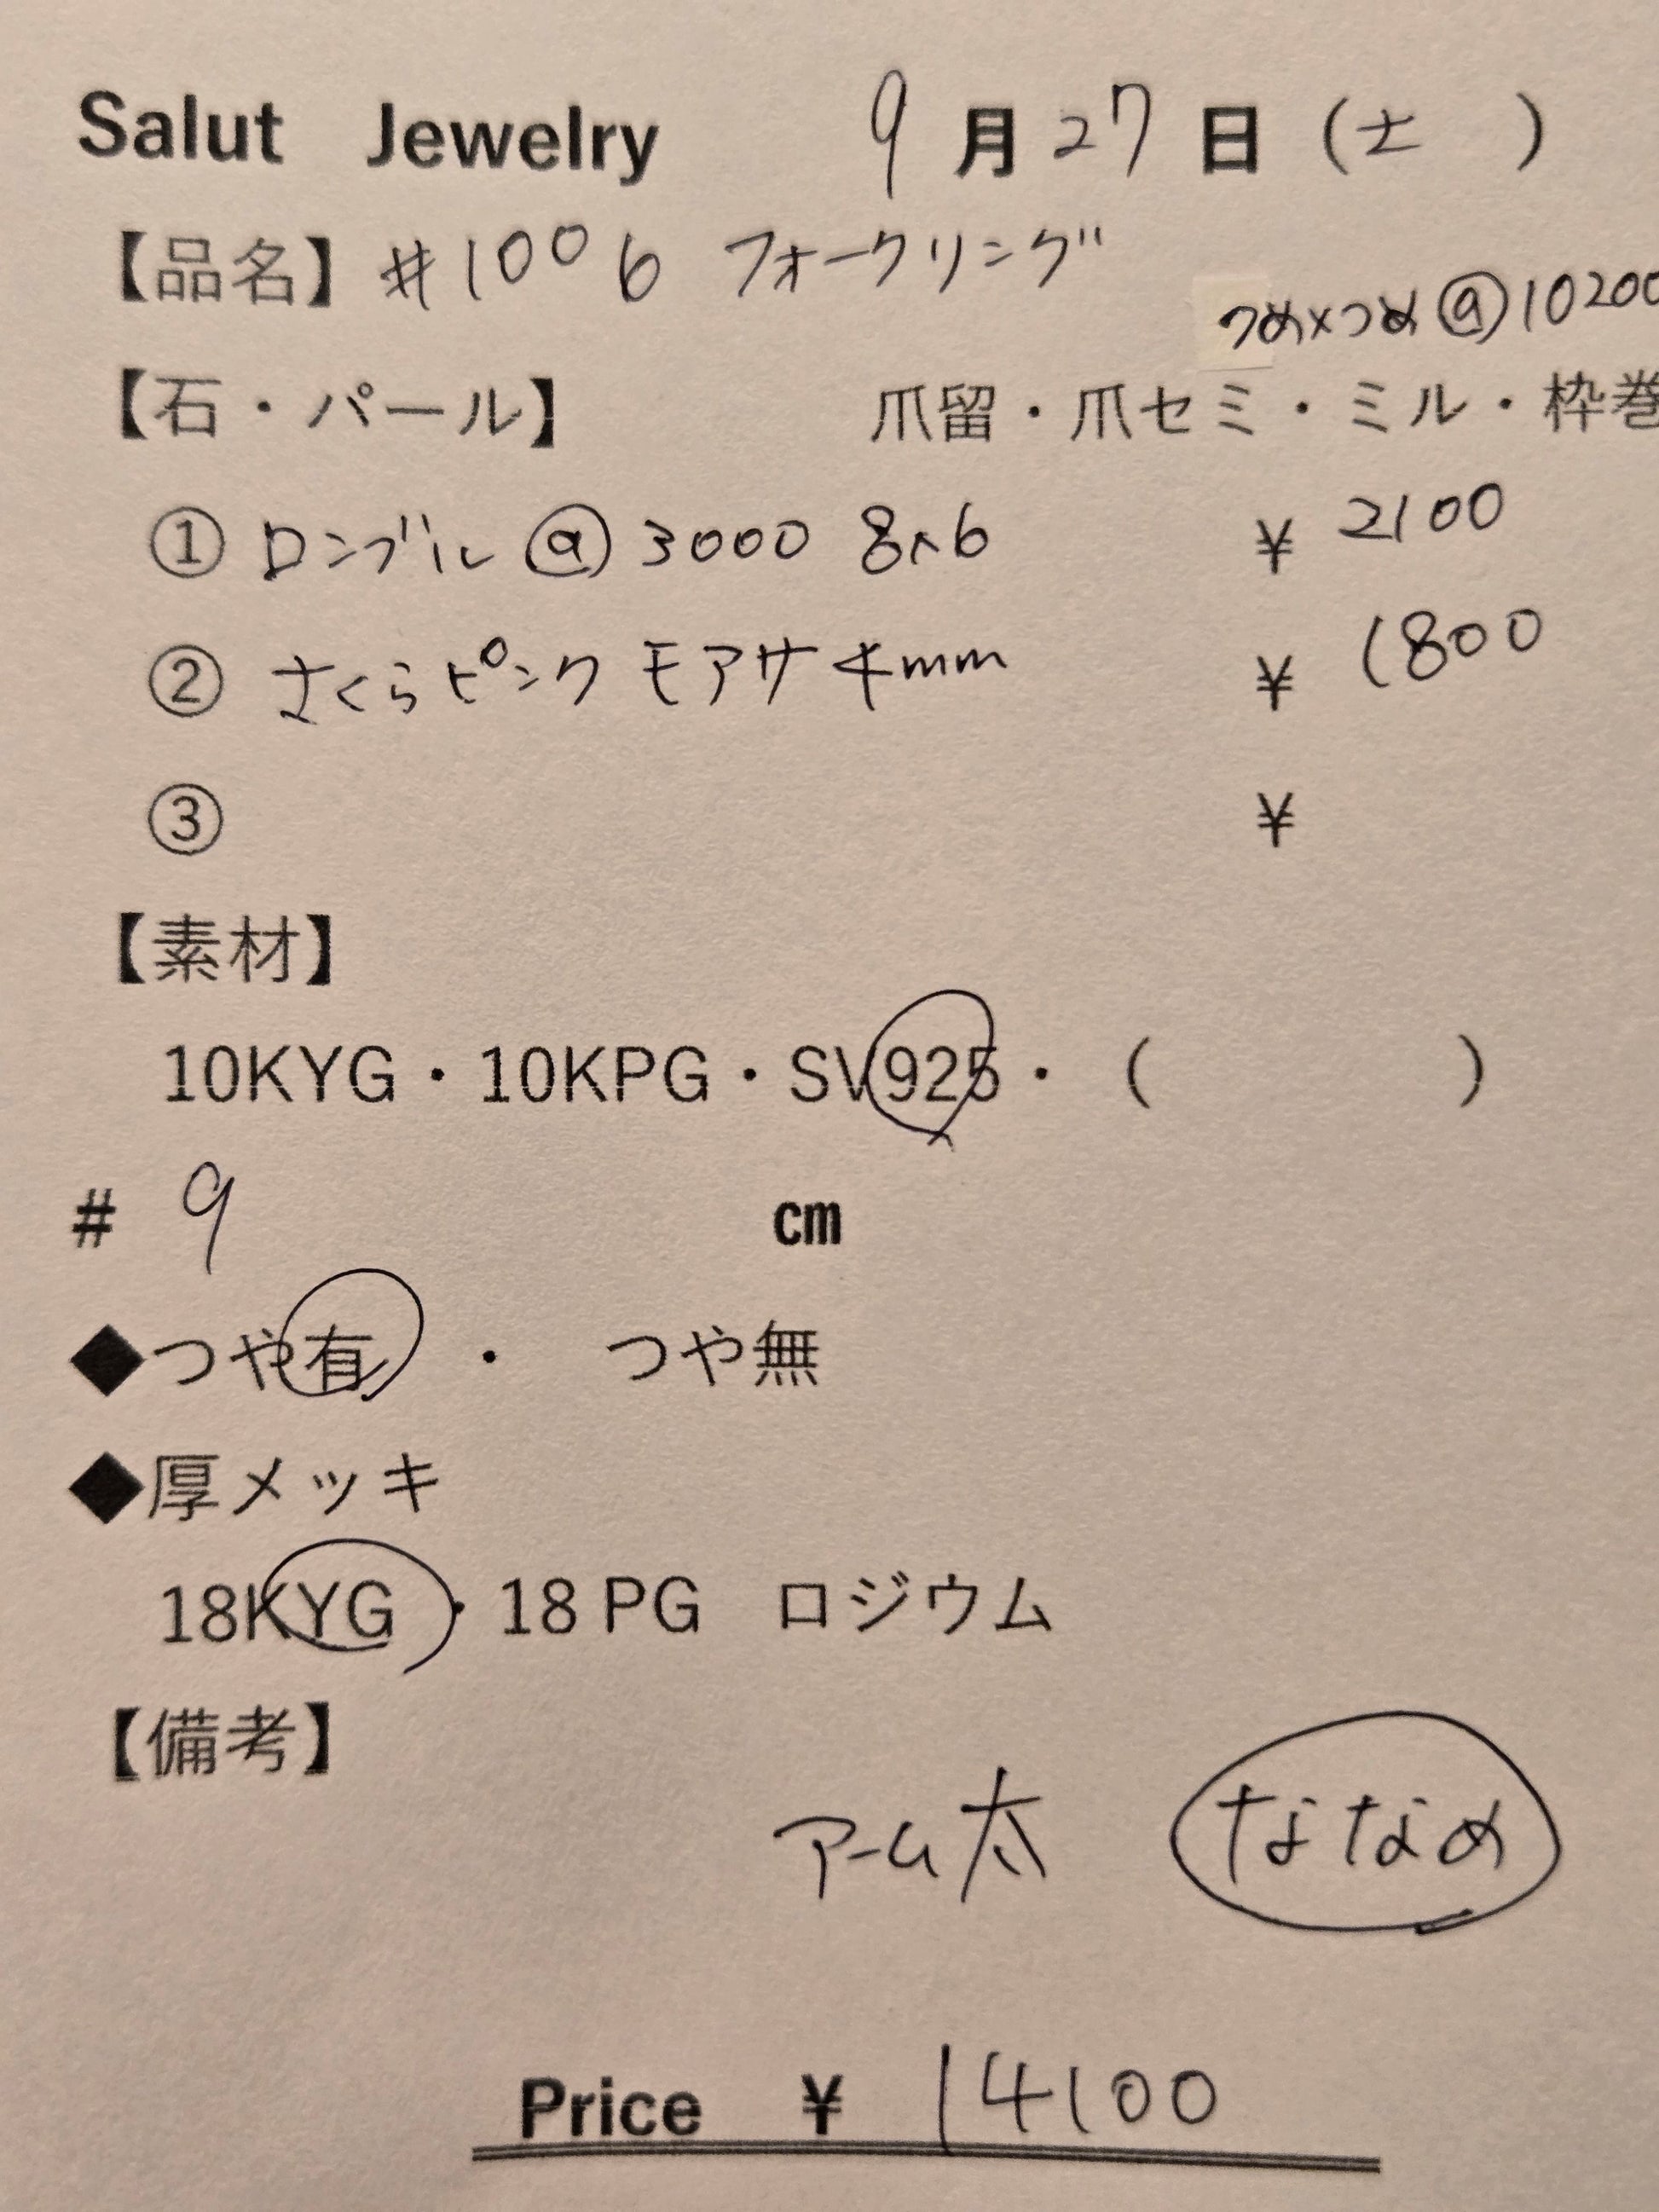 Salut Jewelry 9月27日(土 )
【品名】#1006 フォークリング
つめ×つめ@10200
【石・パール】 爪留・爪セミ・ミル・枠巻
① ロンブル@3000 8×6 ¥2100
② さくらピンク モアサ 4mm ¥1800
③ ¥
【素材】
10KYG・10KPG・SV925・( )
# 9 cm
◆つや有 ・ つや無
◆厚メッキ
18KYG・18 PG ロジウム
【備考】
アーム太 ななめ
Price ¥ 14100